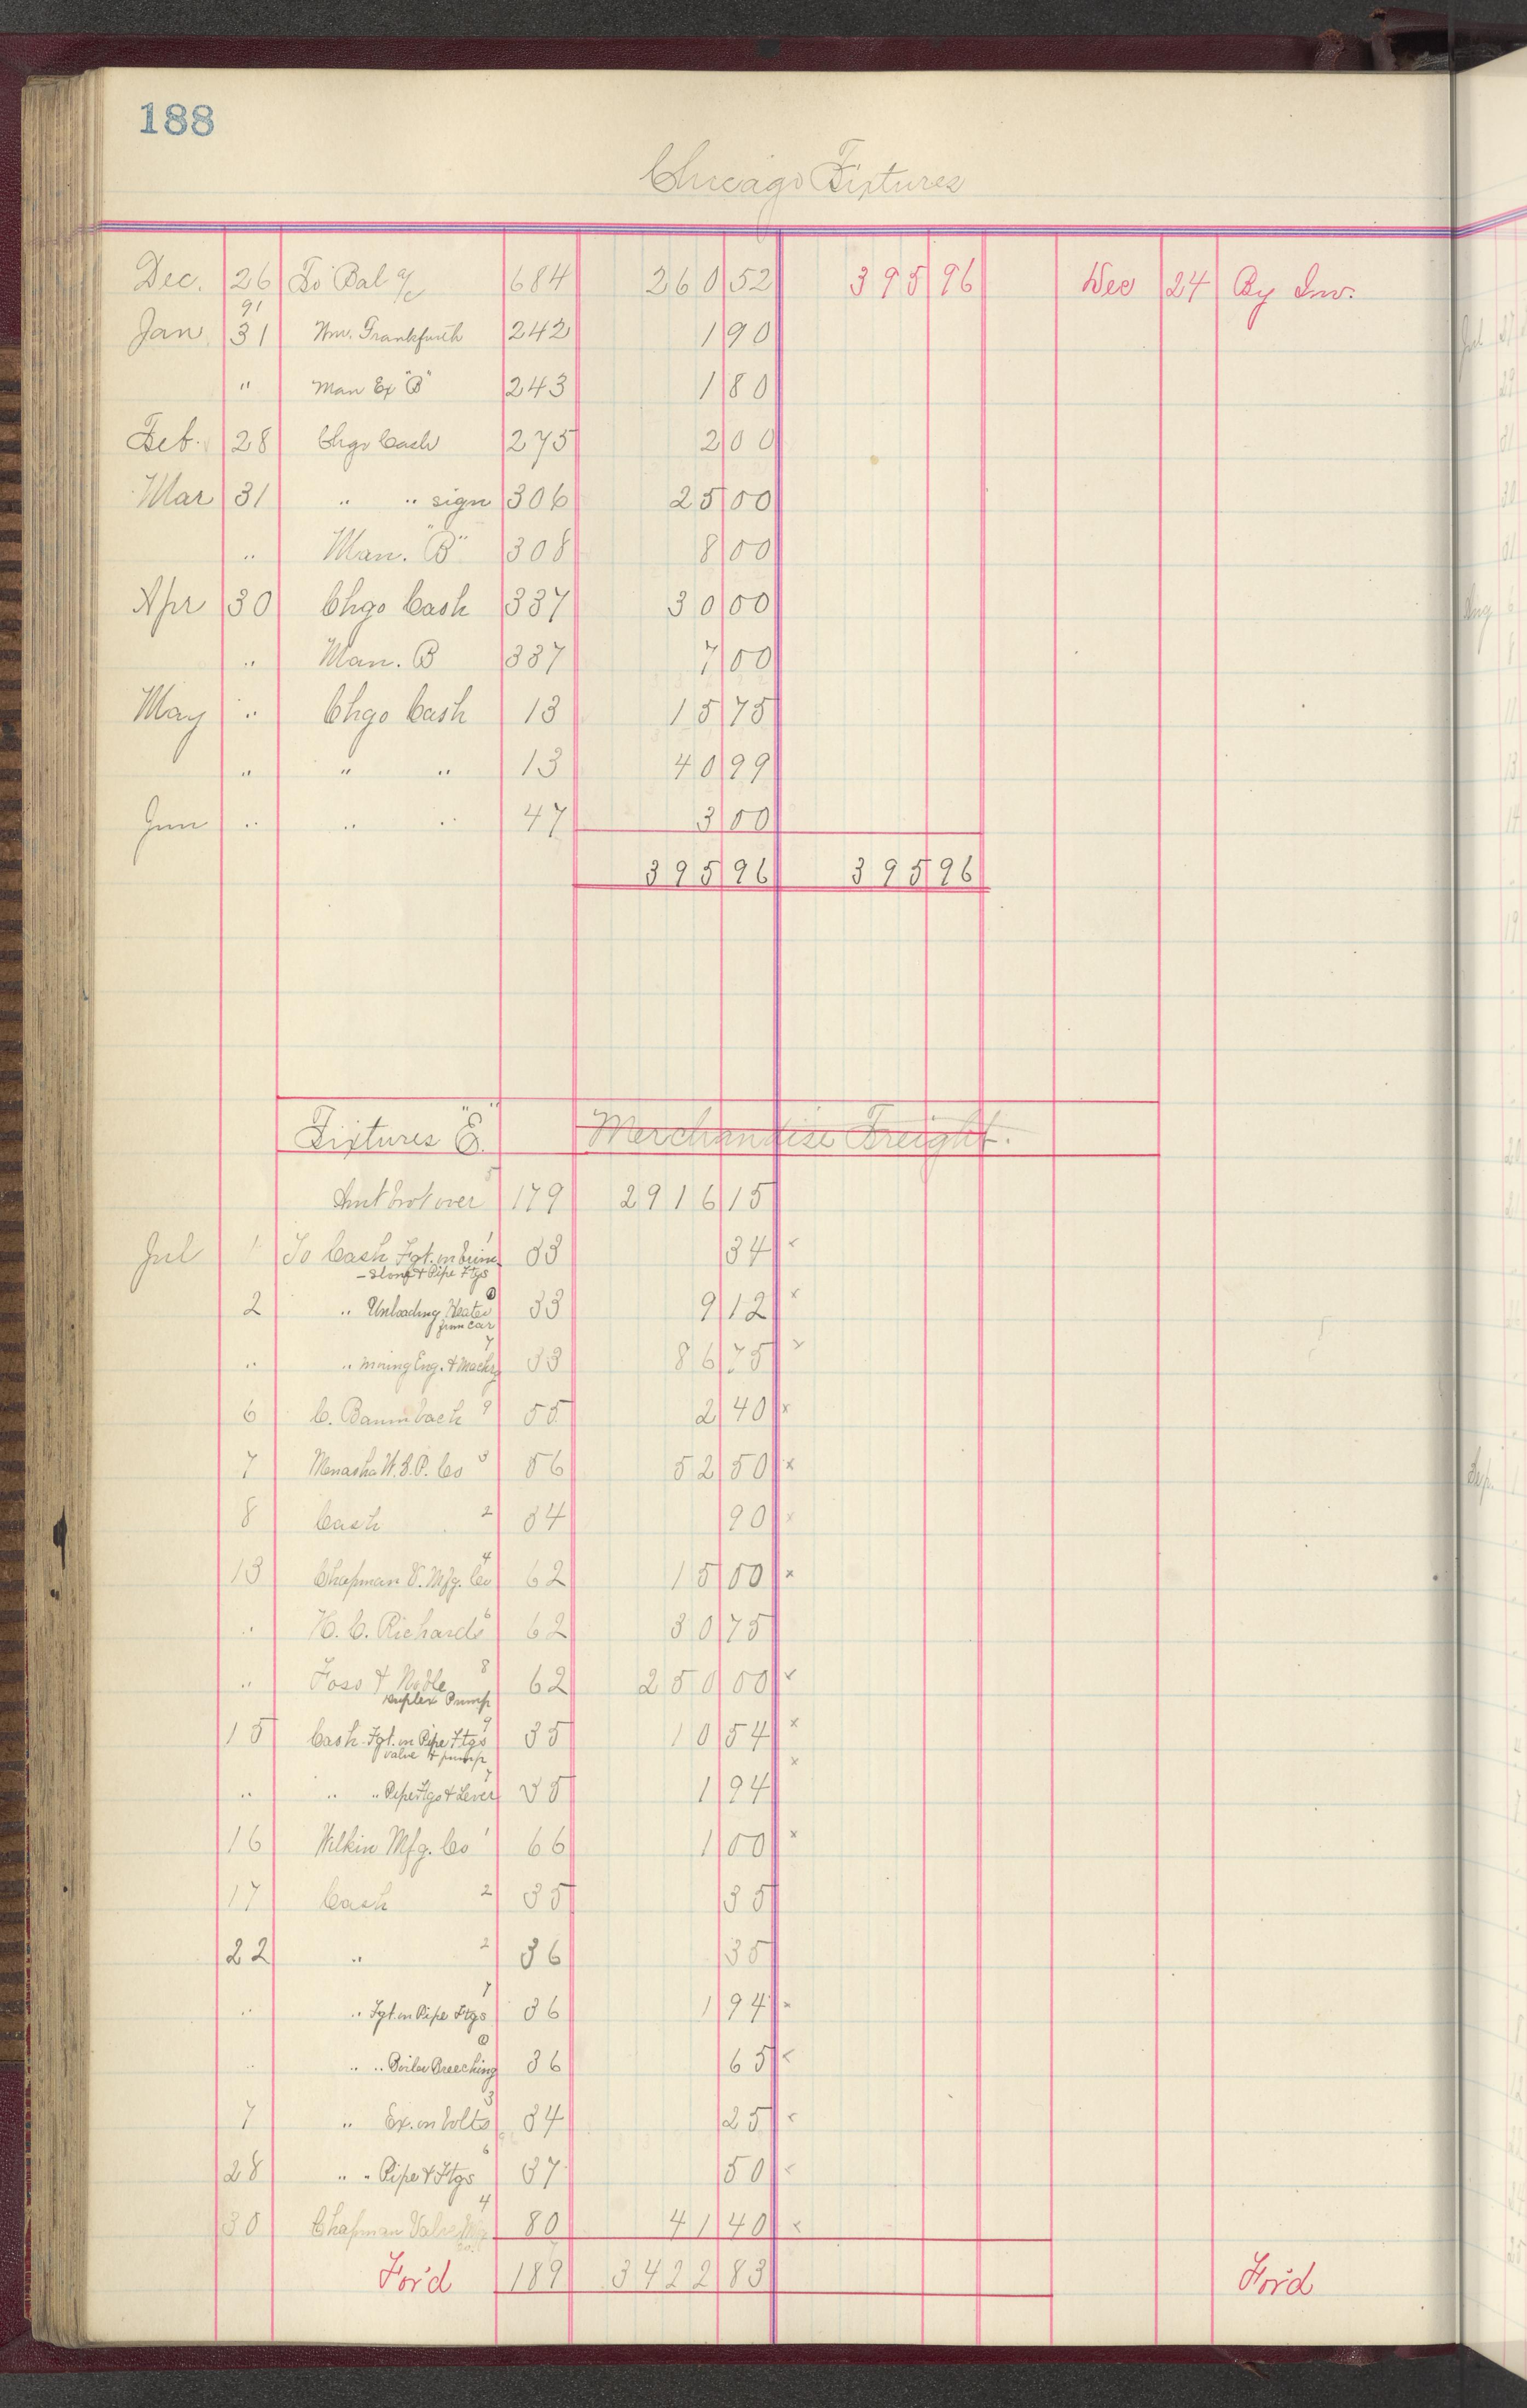 188
Chicago Fixtures
Dec. 26 To Bal a/c 684 260 52 395 96 Dec 24 By Inv.
91
Jan 31 Wm. Frankfurth 242 1 90
" Man Ex "B" 243 1 80
Feb. 28 Chgo Cash 275 2 00
Mar 31 " " sign 306 25 00
" Man. "B" 308 8 00
Apr 30 Chgo Cash 337 30 00
" Man. B 337 7 00
May " Chgo Cash 13 15 75
" " " 13 40 99
Jun " " " 47 3 00
395 96 395 96
Fixtures "E" Merchandise Freight.
Amt brot over 5 179 2916 15
Jul 1 To Cash Fgt. on 33 34 x
& Pipe Ftgs
2 " Unloading Heater 33 9 12 x
from car
" " moving Eng. & Machy 7 33 86 75 x
6 C. Baumbach 9 55 2 40 x
7 Menasha W.S.P. Co 3 56 52 50 x
8 Cash 2 34 90 x
13 Chapman V. Mfg. Co 4 62 15 00 x
" H. C. Richards 6 62 30 75
" Foss & Noble 8 62 250 00 x
Duplex Pump
15 Cash Fgt. on Pipe Ftgs 9 35 10 54 x
valve & pump x
" " " Pipe Ftgs & Lever 7 35 1 94
16 Wilkin Mfg. Co 1 66 1 00 x
17 Cash 2 35 35
22 " 2 36 35
" " Fgt. on Pipe Ftgs 7 36 1 94 x
" " " Boiler Breeching 36 65 x
7 " Ex. on bolts 3 34 25 x
28 " " Pipe & Ftgs 6 37 50 x
30 Chapman Valve Mfg 4 80 41 40 x
Co.
For'd 189 3422 83 For'd